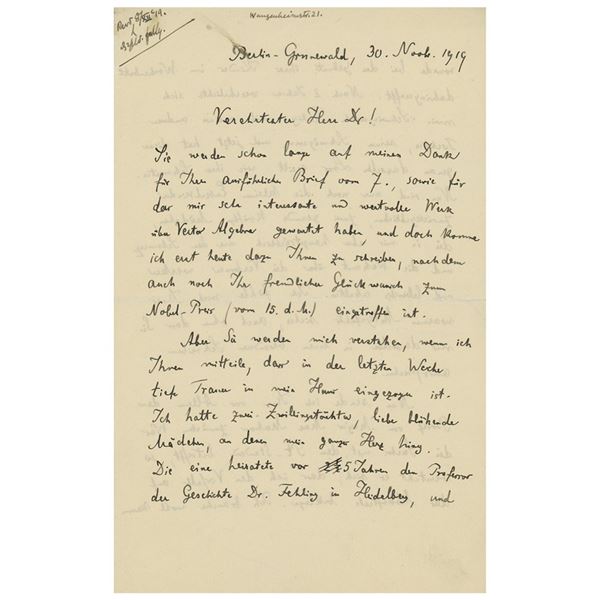 Wangenheimstr. 21.
Berlin-Grunewald, 30. Novb. 1919
Verehrtester Herr Dr!
Sie werden schon lange auf meinen Dank
für Ihren ausführlichen Brief vom 7., sowie für
das mir sehr interessante und wertvolle Werk
über Vector Algebra gewartet haben, und doch komme
ich erst heute dazu Ihnen zu schreiben, nachdem
auch noch Ihr freundlicher Glückwunsch zum
Nobel-Preis (vom 15. d. M.) eingetroffen ist.
Aber Sie werden mich verstehen, wenn ich
Ihnen mitteile, dass in der letzten Woche
tiefe Trauer in mein Haus eingezogen ist.
Ich hatte zwei Zwillingstöchter, liebe blühende
Mädchen, an denen mein ganzes Herz hing.
Die eine heiratete vor 5 Jahren den Professor
der Geschichte Dr. Fehling in Heidelberg, und